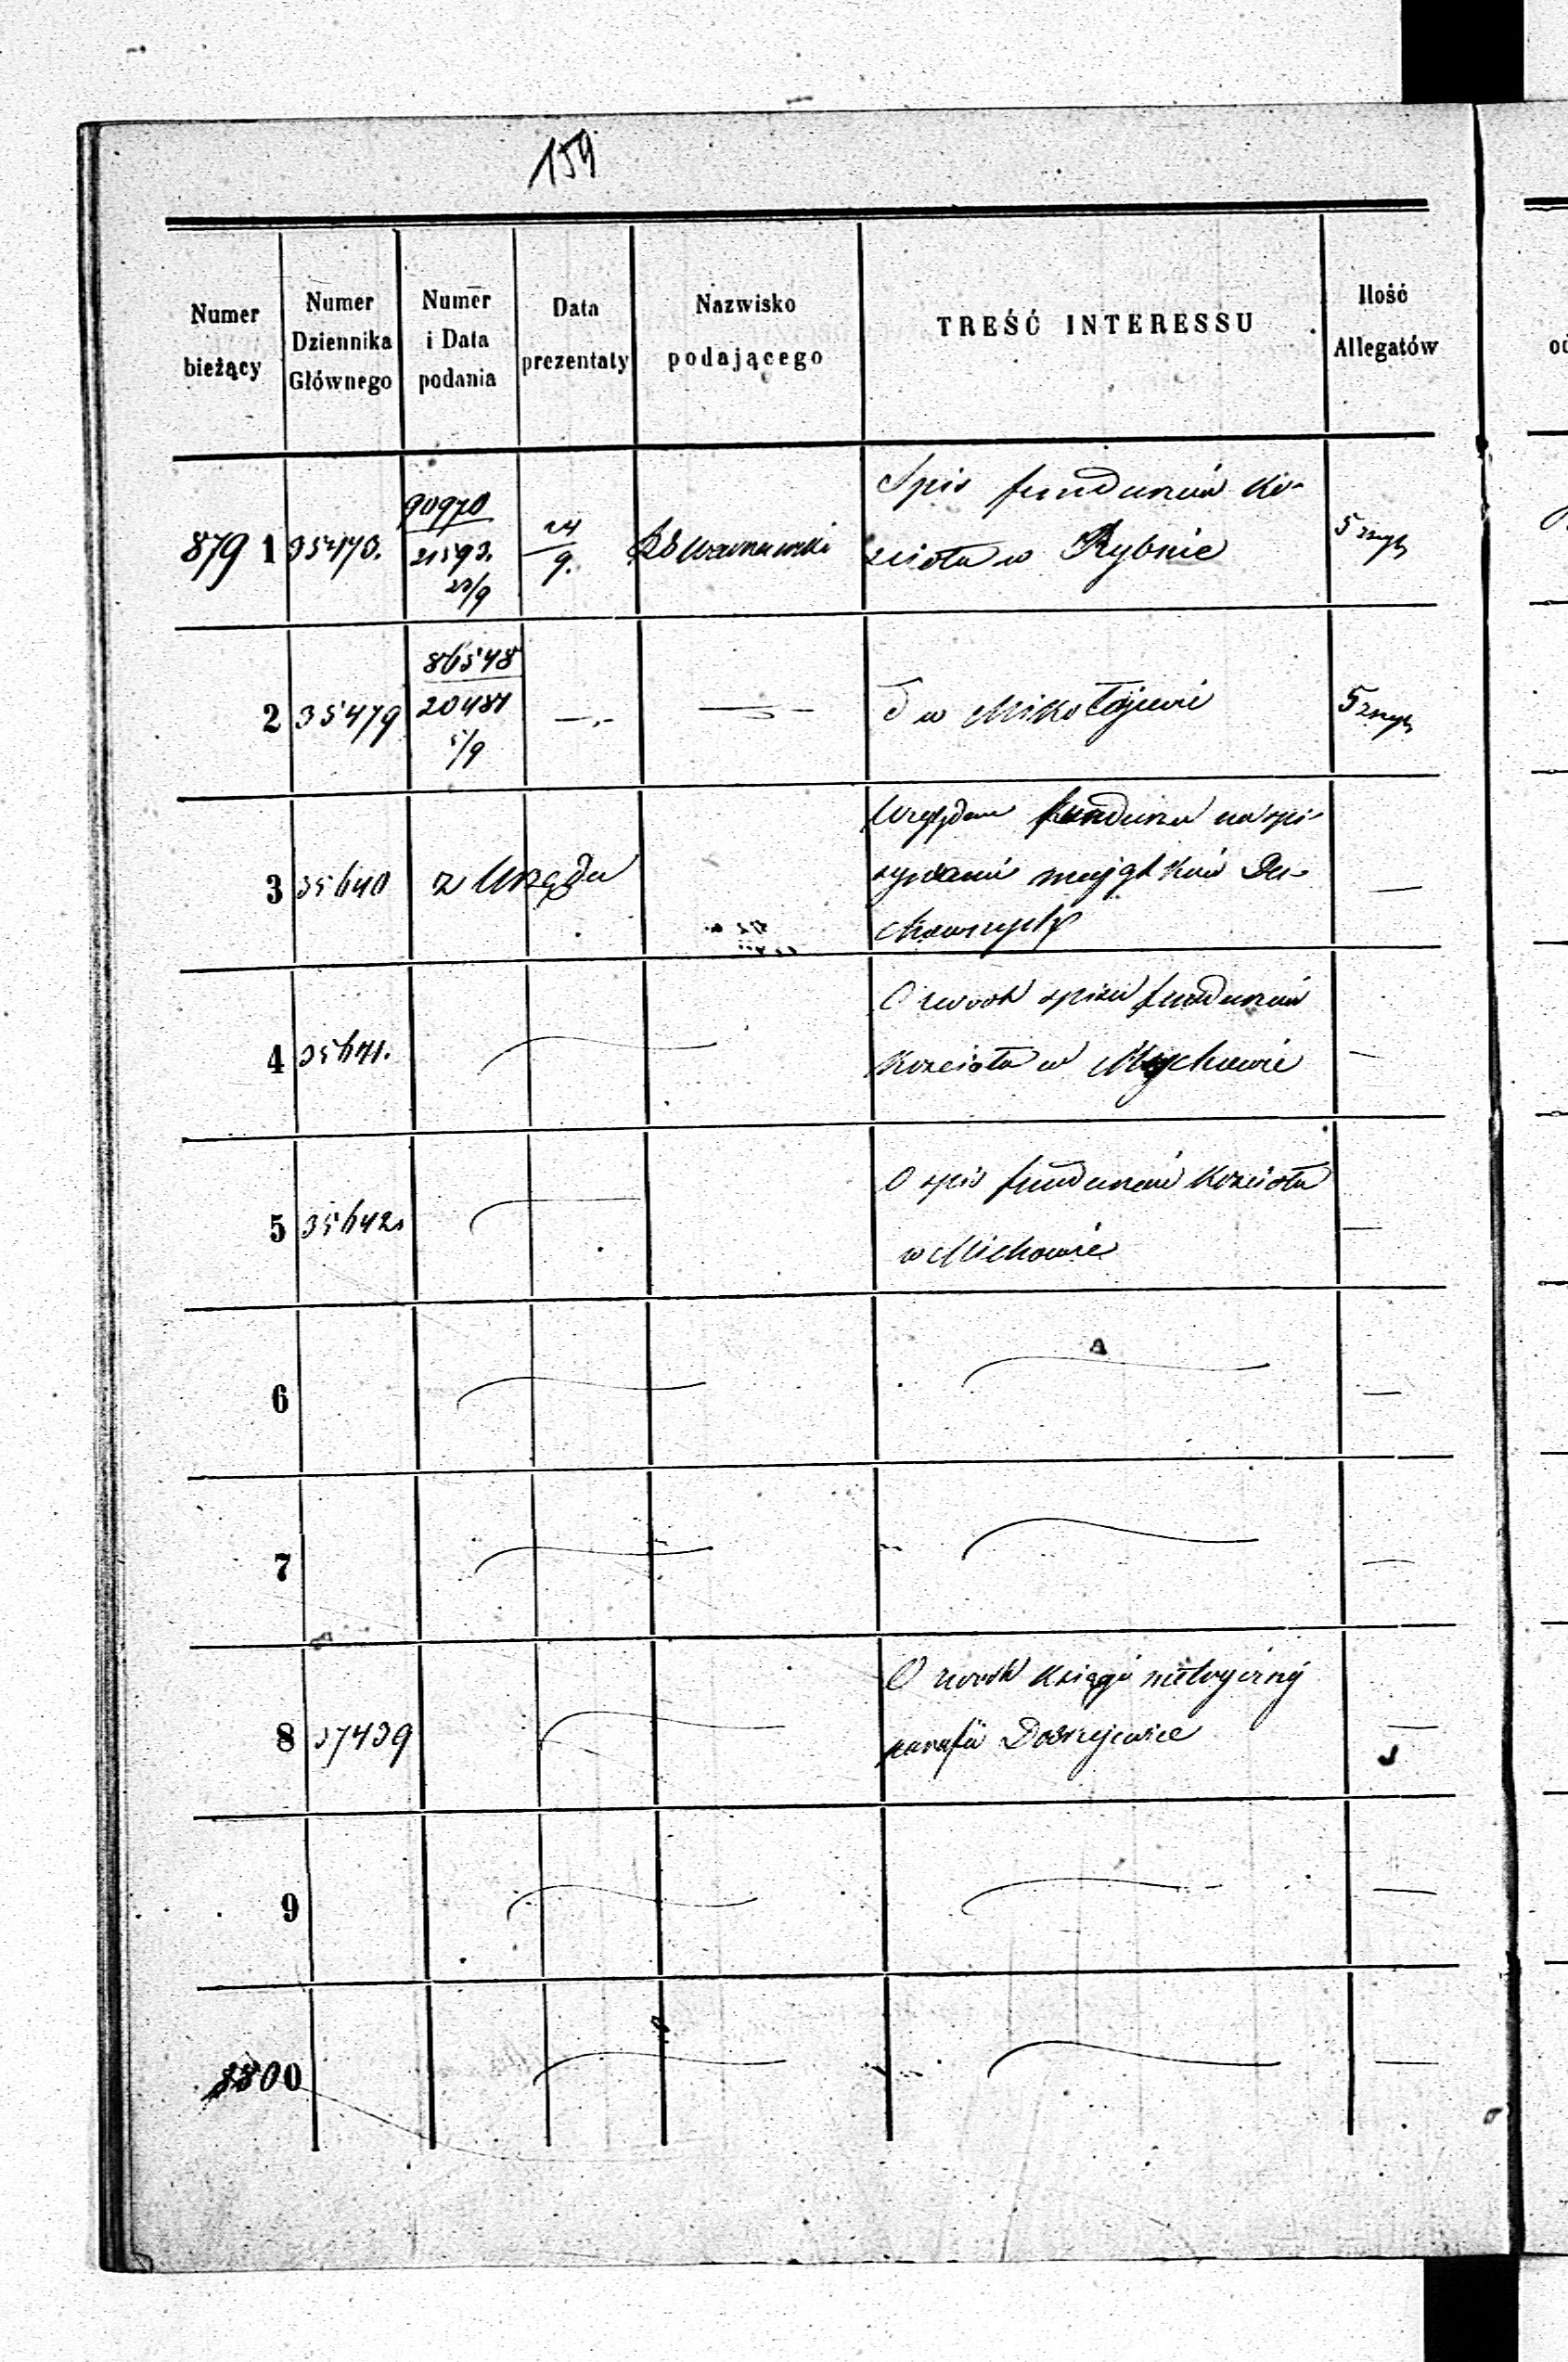 159
Numer bieżący
Numer Dziennika Głównego
Numer i Data podania
Data prezentaty
Nazwisko podającego
TREŚĆ INTERESSU
Ilość Allegatów
879 1
35470.
90970
21593.
23/9
24
9.
Spis funduszów Ko-
ścioła w Rybnie
5
2
35479
86548
20481
5/9
w Mikołajewie
5
3
35640
z Urzędu
Względem funduszu na spi-
sywanie majątków Du-
chownych
4
35641.
O zwrot spisu funduszów
Kościoła w Mychowie
5
35642
O spis funduszów Kościoła
w Michowie
6
7
8
37439
O zwrot księgi metrycznéj
parafii Dobrzejewice
9
8800